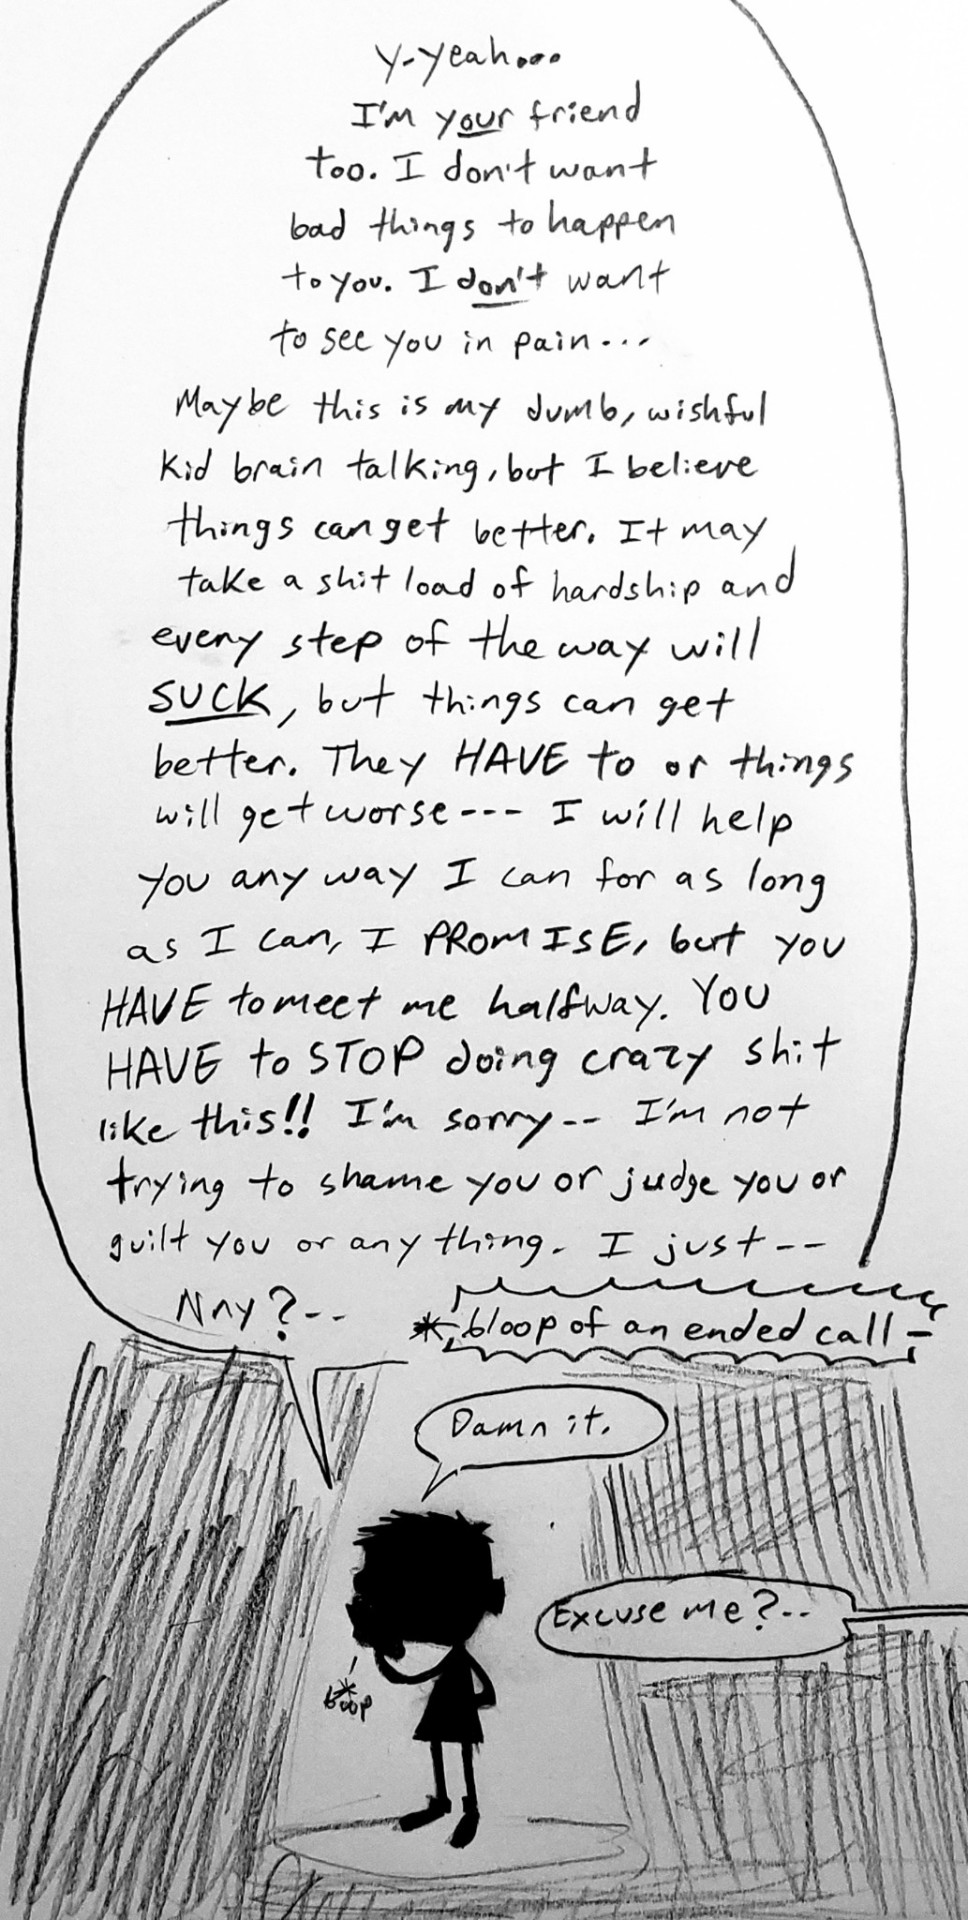 Y-yeah...
I'm your friend
too. I don't want
bad things to happen
to you. I don't want
to see you in pain...
Maybe this is my dumb, wishful
kid brain talking, but I believe
things can get better. It may
take a shit load of hardship and
every step of the way will
SUCK, but things can get
better. They HAVE to or things
will get worse--- I will help
you any way I can for as long
as I can, I PROMISE, but you
HAVE to meet me halfway. YOU
HAVE to STOP doing crazy shit
like this!! I'm sorry-- I'm not
trying to shame you or judge you or
guilt you or anything. I just--
Nny?--
*bloop of an ended call-
Damn it.
Excuse me?--
*boop